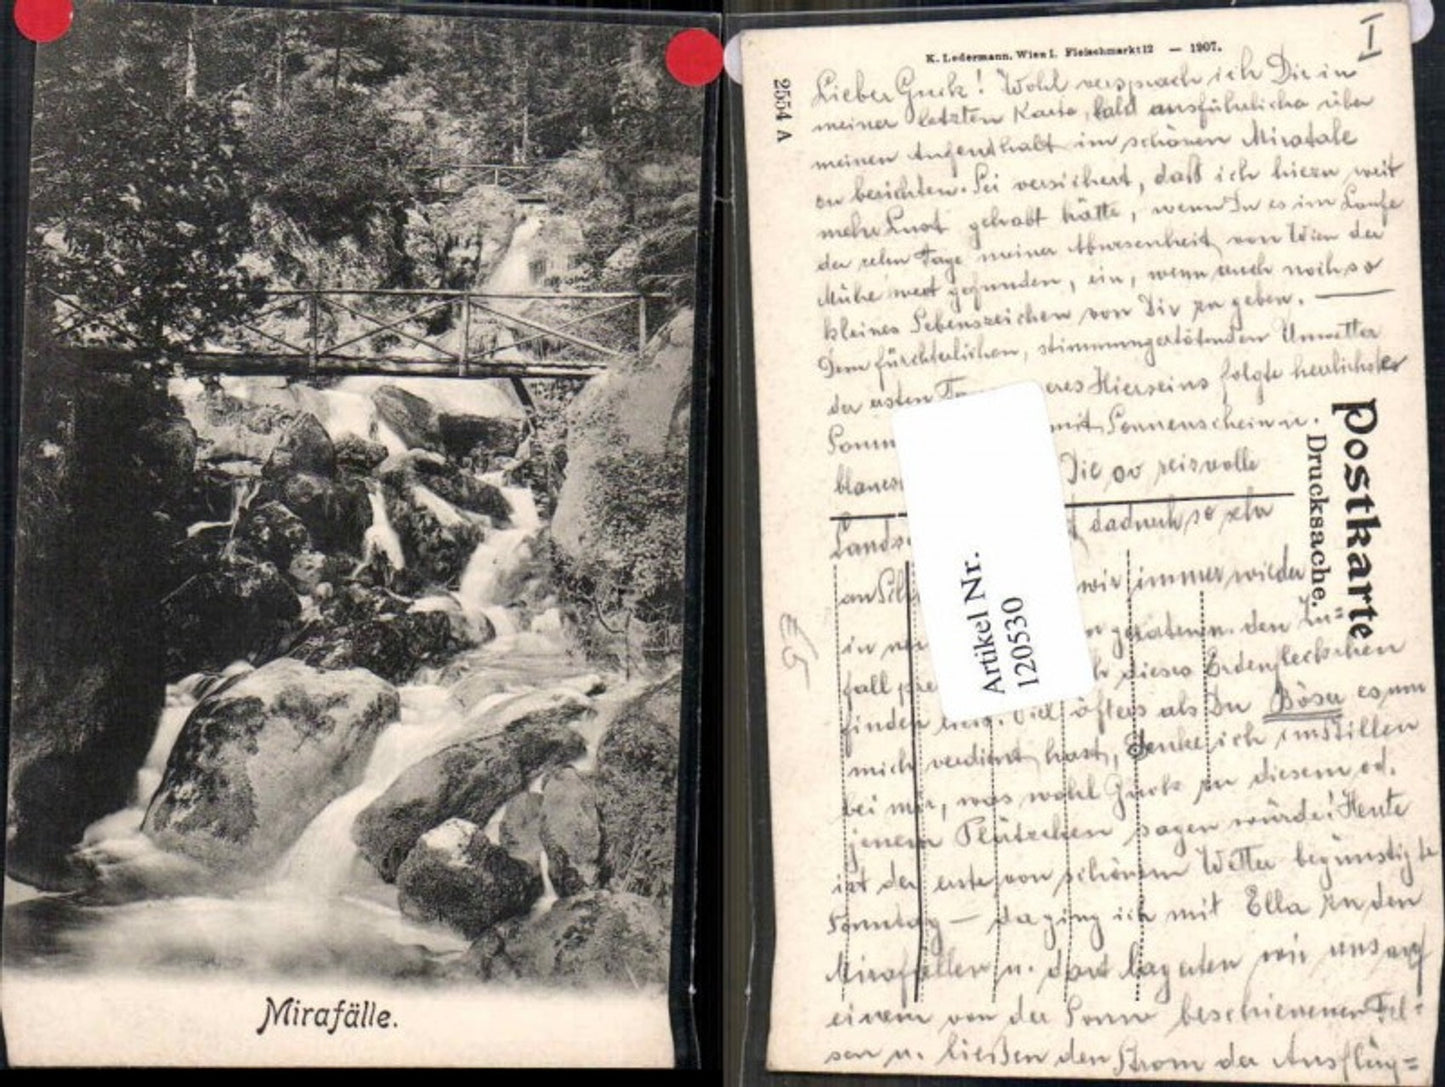 Mirafälle.
K. Ledermann, Wien I. Fleischmarkt 12 — 1907.
I
2554 A
Postkarte
Drucksache.
Artikel Nr.
120530
Lieber Guck! Wohl versprach ich Dir in
meiner letzten Karte, bald ausführlicher über
meinen Aufenthalt im schönen Miratale
zu berichten. Sei versichert, daß ich hiezu weit
mehr Lust gehabt hätte, wenn Du es im Laufe
der Tage meiner Abwesenheit von Wien der
Mühe wert gefunden, ein, wenn auch noch so
kleines Lebenszeichen von Dir zu geben. —
Dem fürchterlichen, stimmungertötenden Unwetter
der ersten eres Hierseins folgte herrlichster
Somm mit Sonnenschein u.
blauem Die so reizvolle
Landsc dadurch so sehr
an wir immer wieder
in den Zu=
fall dieses Erdenfleckchen
finden ließ. Viel öfters als Du Böser es um
mich verdient hast, denke ich im Stillen
bei mir, was wohl Guck zu diesem od.
jenem Plätzchen sagen würde! Heute
ist der erste, von schönem Wetter begünstigte
Sonntag — da ging ich mit Ella zu den
Mirafällen u. dort lagerten wir uns auf
einem von der Sonne beschienenen Fel=
sen u. ließen den Strom der Ausflüg=